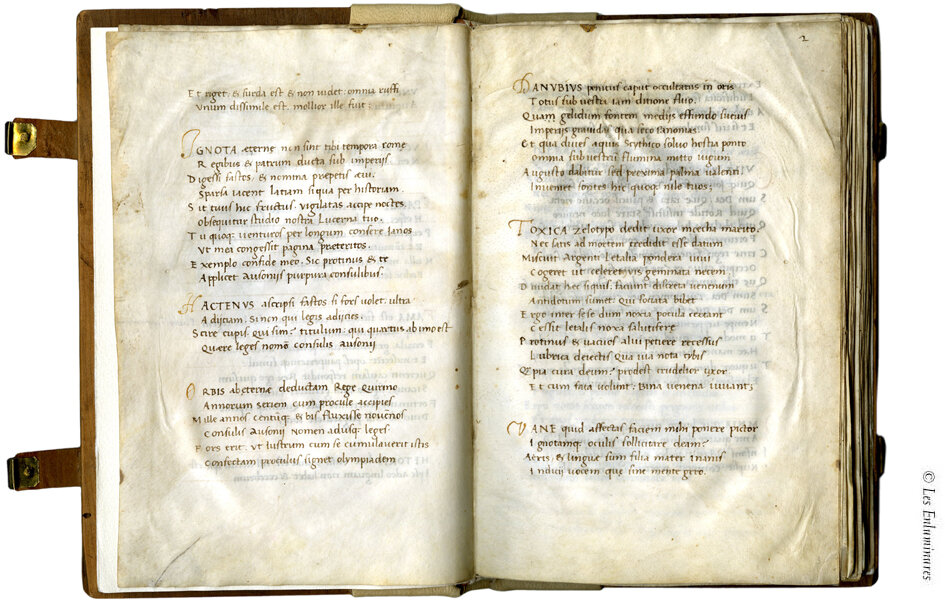 Et riget, & surda est & non videt: omnia ruffi
Unum dissimile est. mollior ille fuit;
IGNOTA aeterne non sint tibi tempora rome
Regibus & patrum ducta sub imperijs
Digessi fastos, & nomina praepetis aeui.
Sparsa iacent latiam siqua per historiam.
Sit tuus hic fructus. vigilatas accipe noctes.
Obsequitur studio nostra Lucerna tuo.
Tu quoq; venturos per longum consere Ianos
Vt mea congessit pagina praeteritos.
Exemplo confide meo. Sic protinus & te
Applicet Ausonijs purpura consulibus.
HACTENVS ascripsi fastos si fors volet, ultra
Adijciam. Si non qui legis adijcies.
Scire cupis, qui sim? titulum: qui quartus ab imo est
Quaere leges nomen consulis Ausonij
VRBIS ab aeternae deductam Rege Quirino
Annorum seriem cum procule accipies
Mille annos centumq; & bis fluxisse novenos
Consulis Ausonij nomen adusq; leges
Fors erit, Vt lustrum cum se cumulaverit istis
Confectam proculus signet olympiadem
2
DANVBIVS penitus caput occultatus in oris
Totus sub vestra iam ditione fluo.
Quam gelidum fontem medijs effundo sueuis
Imperijs gravidas qua seco Panonias.
Et qua dives aquis Scythico solvo hostia ponto
Omnia sub vestrum flumina mitto iugum
Augusto dabitur sed proxima palma valenti.
Inveniet fontes hic quoq; nile tuos;
TOXICA zelotypo dedit uxor moecha marito.
Nec satis ad mortem credidit esse datum
Miscuit Argenti letalia pondera vivi
Cogeret ut celerem vis geminata necem.
Dividat hec siquis, faciunt discreta venenum
Antidotum sumet: Qui sociata bibet
Ergo inter sese dum noxia pocula certant
Cessit letalis noxa salutifere
Protinus & vacuos alvi petiere recessus
Lubrica deiectis Qua via nota cybis
Q pia cura deum; prodest crudelior uxor.
Et cum fata volunt; Bina venena iuvant;
VANE quid affectas faciem mihi ponere pictor
Ignotamq; oculis sollicitare deam?
Aeris, & lingue sum filia mater inanis
Indicij vocem que sine mente gero.
© Les Enluminures